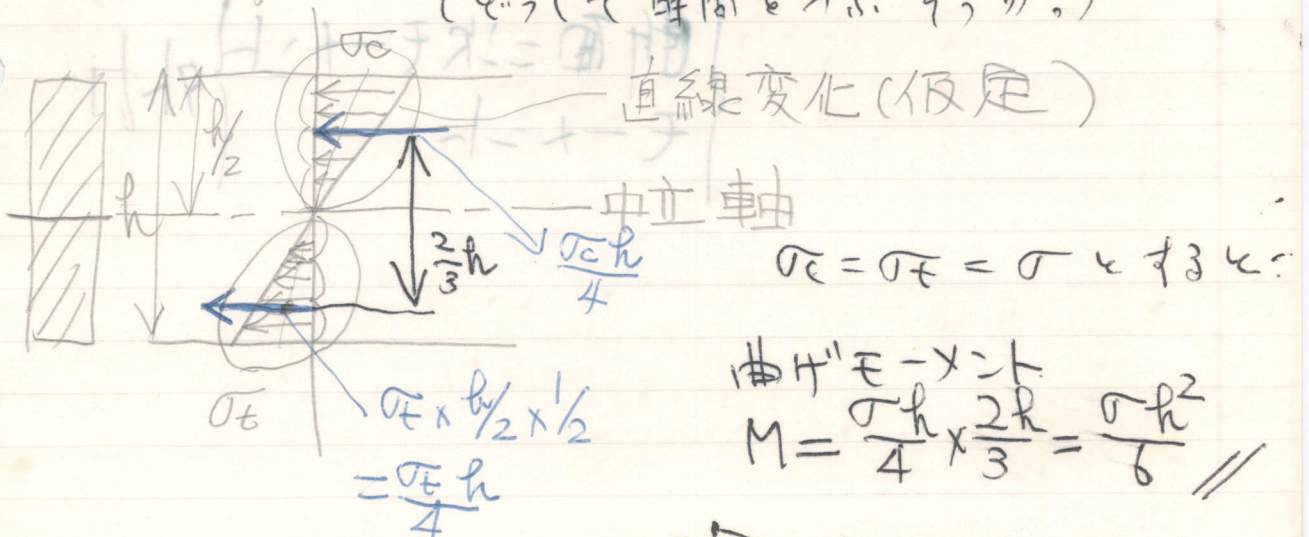 σc
直線変化(仮定)
h/2
h
中立軸
2/3 h
σc h/4
σc = σt = σ とすると
σt
σt × h/2 × 1/2
= σt h/4
曲げモーメント
M = σh/4 × 2h/3 = σh²/6 //